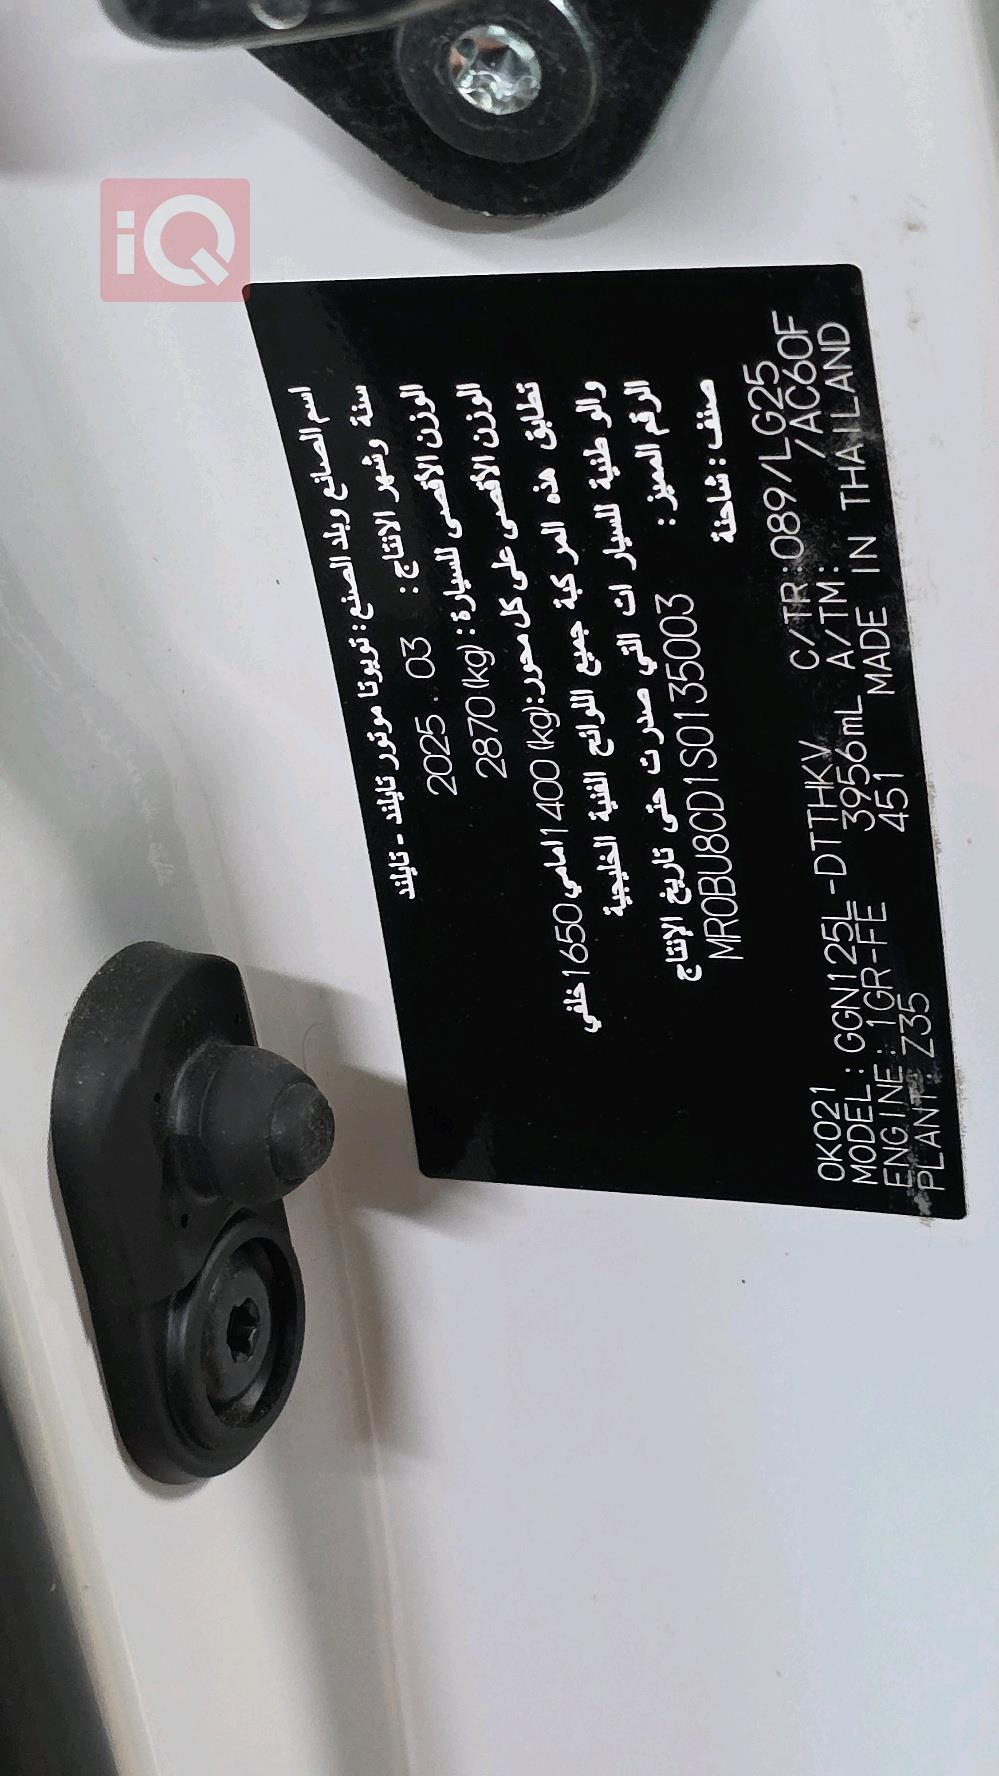 iQ
اسم الصانع وبلد الصنع: تويوتا موتور تايلند - تايلند
سنة وشهر الانتاج: 2025 . 03
الوزن الأقصى للسيارة: 2870(kg)
الوزن الأقصى على كل محور:(kg)1400 امامي 1650 خلفي
تطابق هذه المركبة جميع اللوائح الفنية الخليجية
والوطنية للسيارات التي صدرت حتى تاريخ الإنتاج
الرقم المميز: MR0BU8CD1S0135003
صنف: شاحنة
0K021 C/TR:089/LG25
MODEL:GGN125L-DTTHKV A/TM: /AC60F
ENGINE:1GR-FE 3956mL MADE IN THAILAND
PLANT:Z35 451